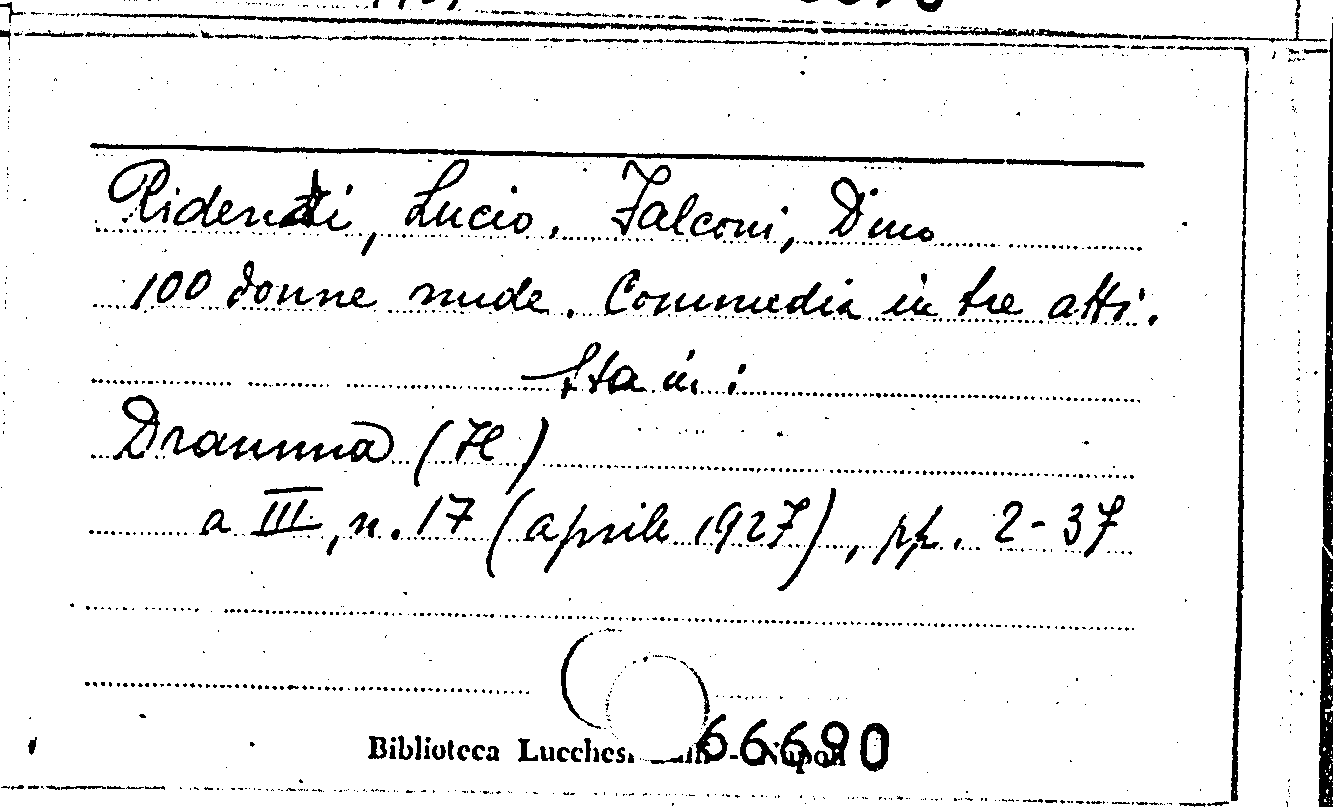 Ridenti, Lucio. Falconi, Dino
100 donne nude. Commedia in tre atti.
Sta in:
Dramma (Il)
a III, n. 17 (aprile 1927), pp. 2-37
Biblioteca Lucchesi - Napoli
66690